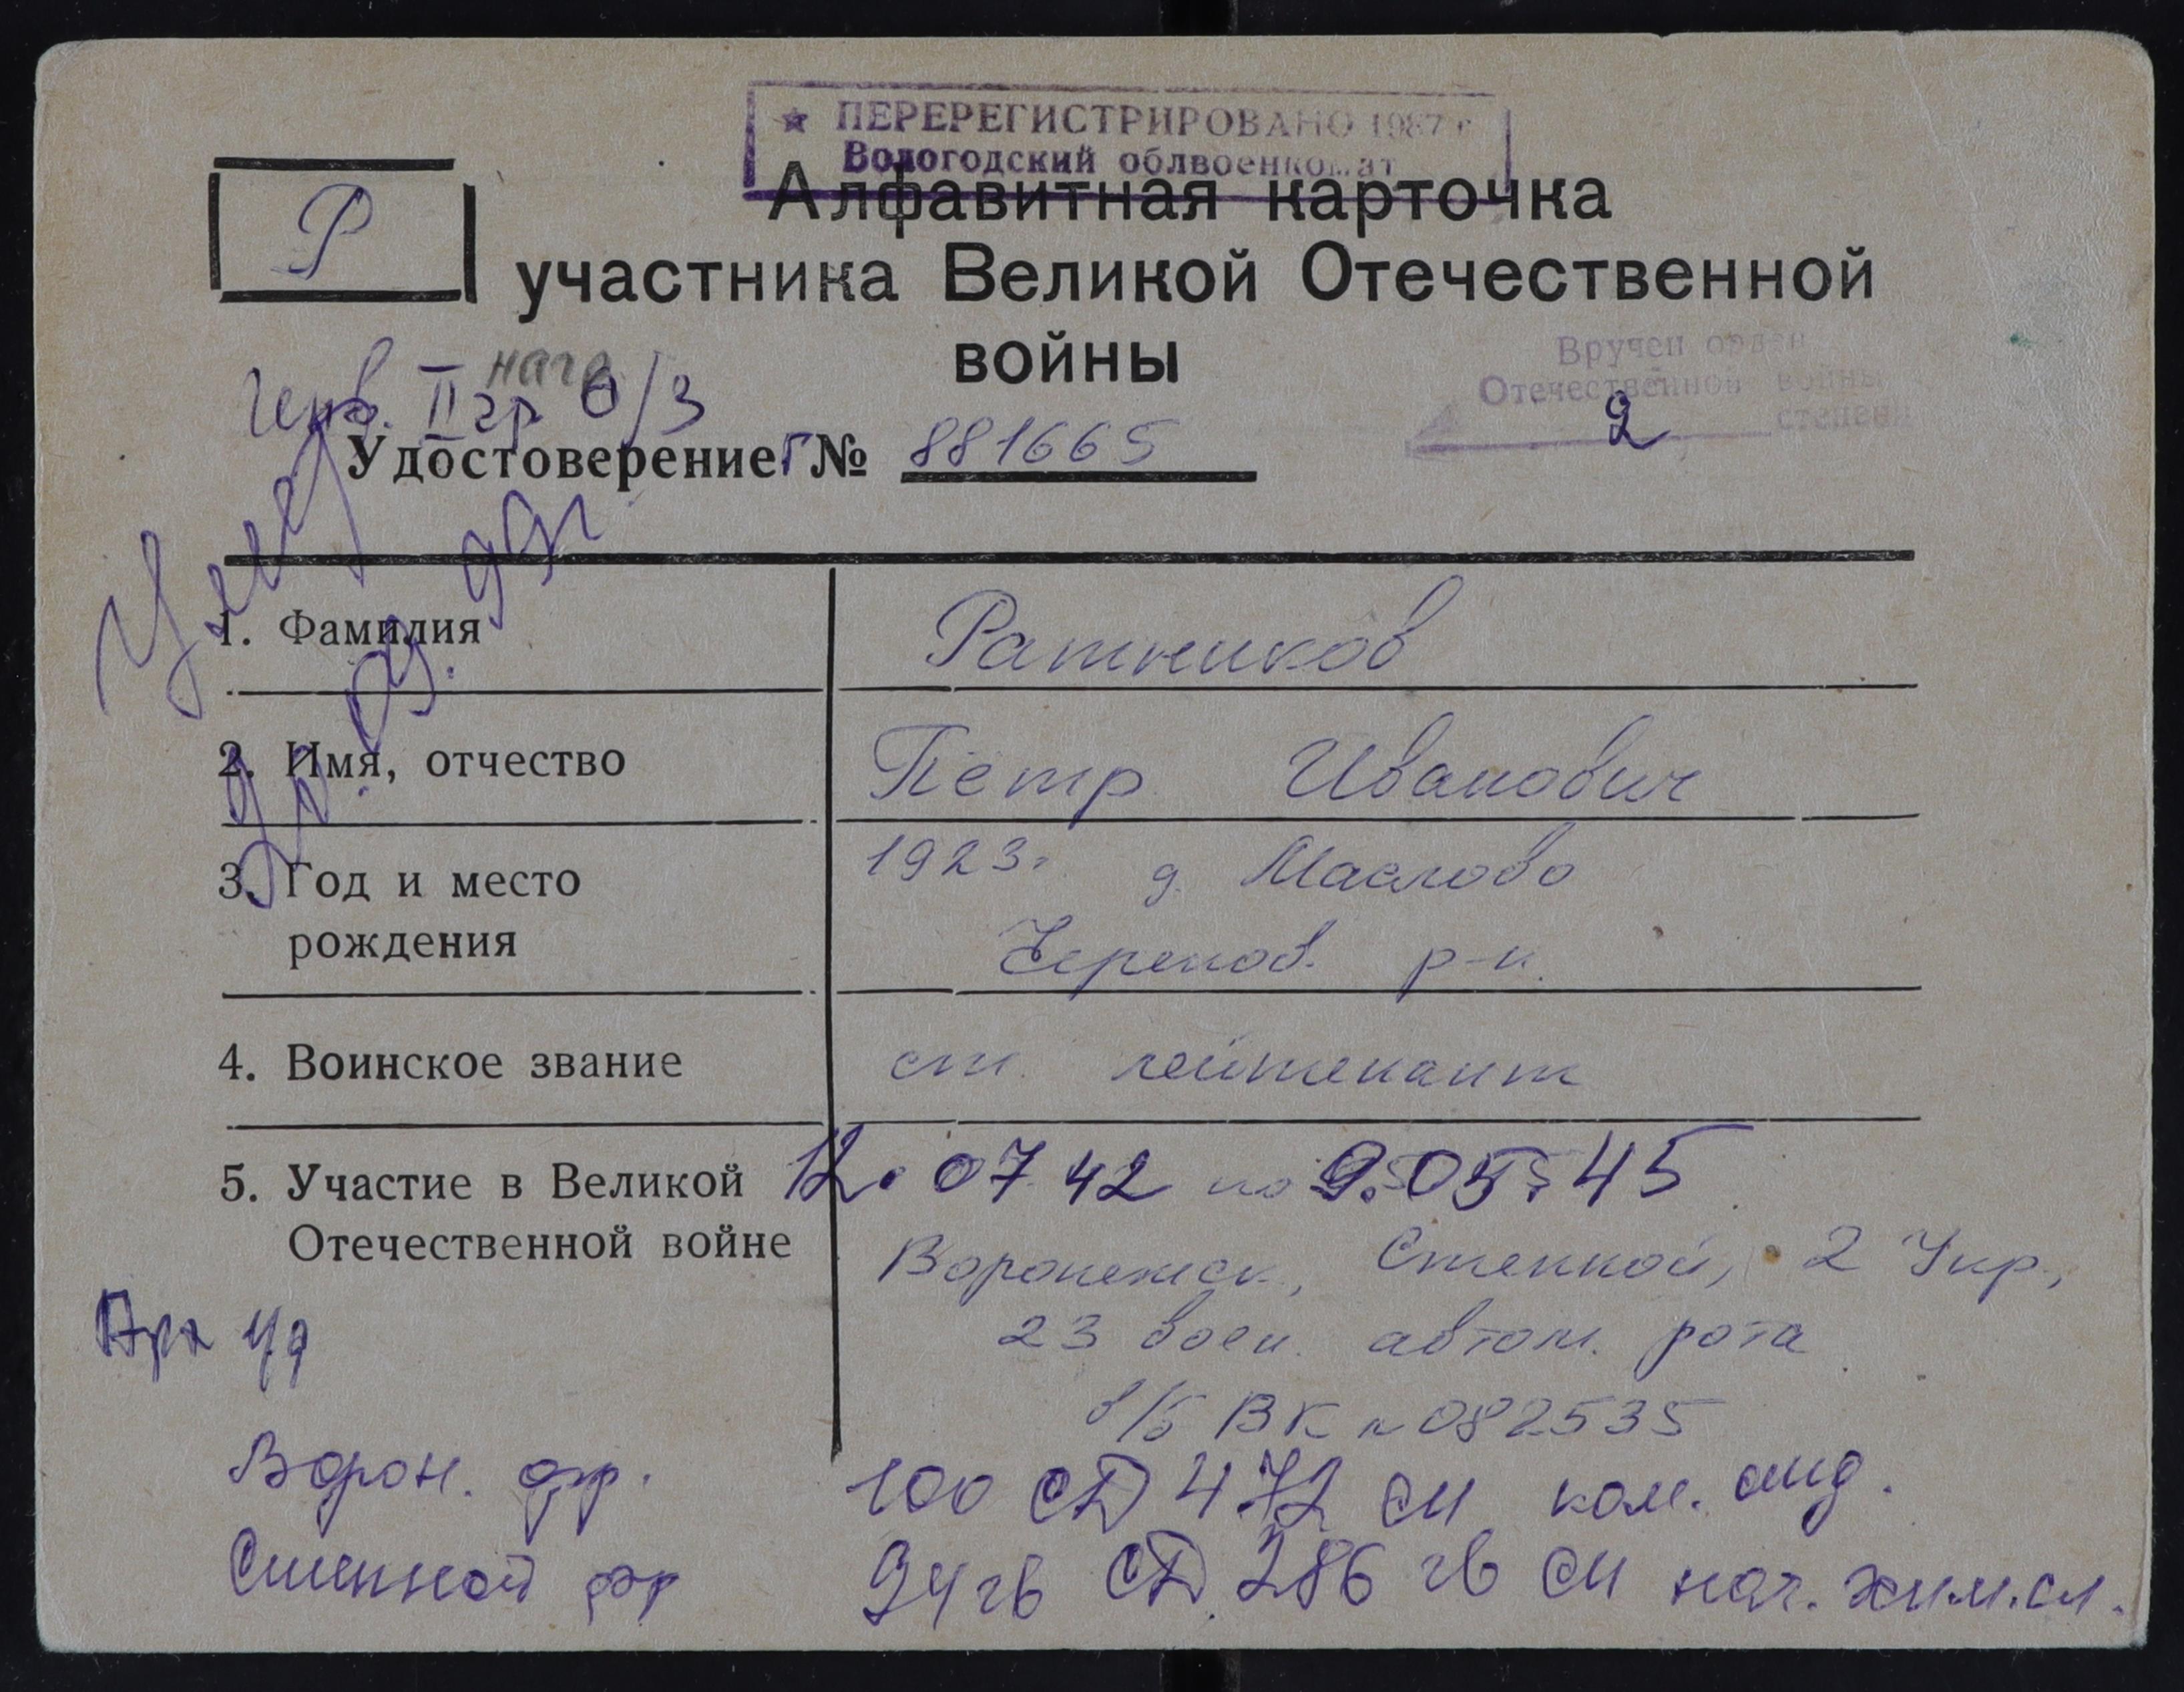 ★ ПЕРЕРЕГИСТРИРОВАНО 1987 г
Вологодский облвоенкомат
Р
Алфавитная карточка
участника Великой Отечественной
войны
Вручен орден
Отечественной войны
2 степени
Инв. II гр
Удостоверение Г № 881665
Умер
1. Фамилия Ратников
2. Имя, отчество Пётр Иванович
3. Год и место рождения 1923г д. Маслово
Черепов. р-н.
4. Воинское звание ст. лейтенант
5. Участие в Великой Отечественной войне 12.07.42 по 9.05.45
Воронежск., Степной, 2 Укр.,
23 воен. автом. рота
в/б ВК № 082535
Ворон. фр. 100 СД 472 СП ком. отд.
Степной фр 94 гв СД. 286 гв СП нач. хим.сл.